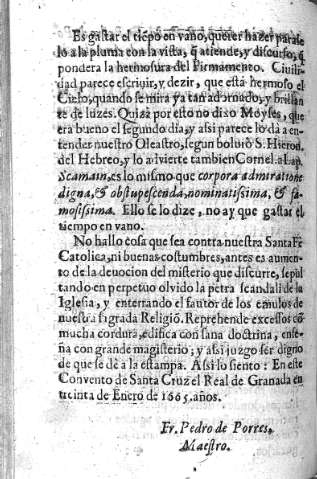 Es gastar el tiẽpo en vano, querer hazer parale
lo a la pluma con la vista, q̃ atiende, y discurso, q̃
pondera la hermosura del Firmamento. Ciuili-
dad parece escriuir, y dezir, que està hermoso el
Cielo, quando se mira ya tan adornado, y brillan
te de luzes. Quizà por esto no dixo Moyses, que
era bueno el segundo dia, y assi parece lo dà a en-
tender nuestro Oleastro, segun boluiò S. Hieron.
del Hebreo, y lo aduierte tambien Cornel. a Lap.
Scamain, es lo mismo que corpora admiratione
digna, & obstupescenda, nominatissima, & fa-
mosissima. Ello se lo dize, no ay que gastar el
tiempo en vano.
No hallo cosa que sea contra nuestra Santa Fè
Catolica, ni buenas costumbres, antes es aumen-
to de la deuocion del misterio que discurre, sepul
tando en perpetuo olvido la petra scandali de la
Iglesia, y enterrando el fautor de los emulos de
nuestra sagrada Religiõ. Reprehende excessos cõ
mucha cordura, edifica con sana doctrina, ense-
ña con grande magisterio; y assi juzgo ser digno
de que se dè a la estampa. Assi lo siento: En este
Convento de Santa Cruz el Real de Granada en
treinta de Enero de 1665. años.
Fr. Pedro de Porres,
Maestro.